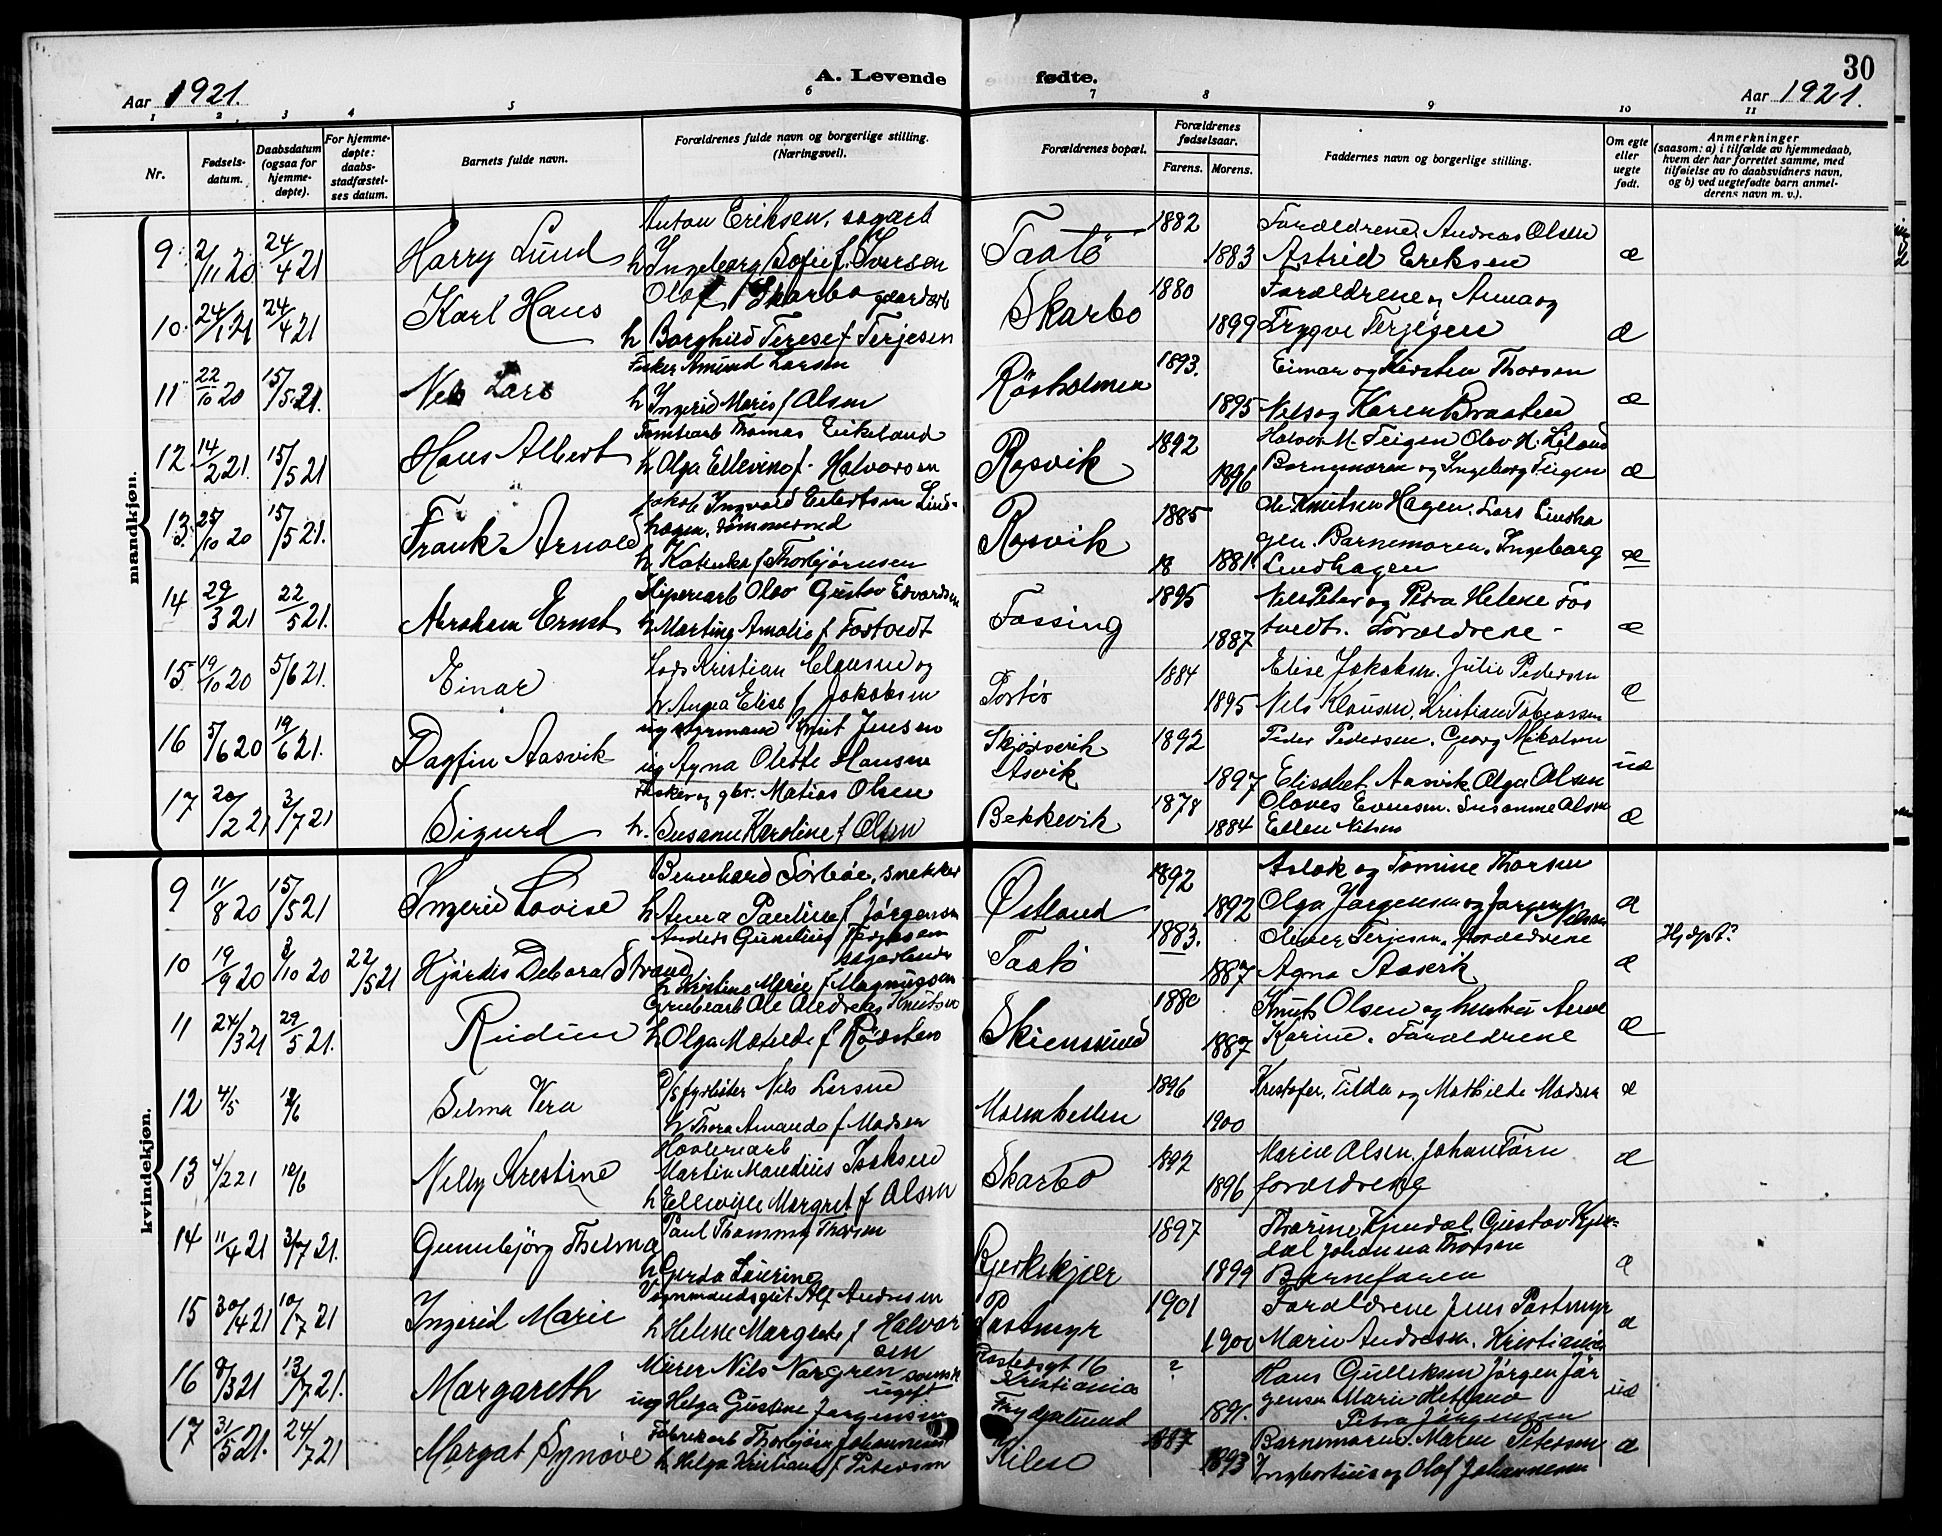 A. Levende fødte.
30
Aar 1921.
Aar 1921.
1 2 3 4 5 6 7 8 9 10 11
Nr.
Fødsels-
datum.
Daabsdatum
(ogsaa for
hjemme-
døpte).
For hjemme-
døpte:
daabs-
stadfæstel-
ses datum.
Barnets fulde navn.
Forældrenes fulde navn og borgerlige stilling.
(Næringsvei).
Forældrenes bopæl.
Forældrenes
fødselsaar.
Farens. Morens.
Faddernes navn og borgerlige stilling.
Om egte
eller
uegte
født.
Anmerkninger
(saasom: a) i tilfælde av hjemmedaab,
hvem der har forrettet samme, med
tilføielse av to daabsvidners navn,
og b) ved uegtefødte barn anmel-
derens navn m. v.).
mandkjøn.
9. 2/11 20. 24/4 21 Harry Lund
Anton Eriksen, sagarb
h Ingeborg Sofie f. Iversen
Taatö 1882 1883
Forældrene, Andreas Olsen
Astrid Eriksen æ
10. 24/1 21 24/4 21 Karl Hans
Olaf Skarbo gaardarb
h Borghild Terese f Terjesen
Skarbo 1880 1899
Forældrene og Anna og
Trygve Terjesen æ
11. 22/10 20 15/5 21. Nels Lars
Fisker Amund Larsen
h Ingerid Marie f Olsen
Røsholmen 1893. 1895
Einar og Kirsten Thorsen
Nels og Karen Braaten æ
12 14/2 21. 15/5 21 Hans Albert
Tomtearb Thomas Eikeland
h Olga Ellevine f. Halvorsen
Rosvik 1892 1896
Halvor M. Teigen Olav H. Liland
Barnemoren og Ingeborg Teigen æ
13. 25/10 20 15/5 21. Frank Arnold
Jakob Ingvald Eilertsen Lind-
hagen, tømmermd
h Katinka f Thorbjørnsen
Rosvik 1885 18 1881.
Ole Knutsen Hagen, Lars Lindha
gen. Barnemoren. Ingeborg
Lindhagen æ
14 29/3 21 22/5 21. Abraham Ernst
Sliperiarb Olav Gustav Edvardsen
h Martine Amalie f Fostvedt
Fossing 1895 1887
Nels Peter og Petra Helene Fos
tvedt. Forældrene æ
15. 19/10 20 5/6 21. Einar
Lods Kristian Clausen og
h Anna Elise f Jakobsen
Portør 1884 1895
Elise Jakobsen. Julie Pedersen
Nils Klausen, Kristian Tobiassen æ
16 5/6 20 19/6 21. Dagfin Aasvik
ug styrmand Knut Jensen
ug Agna Olette Hansen
Skjørsvik
Asvik 1892 1897
Peder Pedersen. Georg Mikalsen
Elisabet Aasvik Olga Olsen ue
17 20/2 21 3/7 21 Sigurd
Fisker og gbr. Matias Olsen
h. Susanne Karoline f Olsen
Bekkevik 1878 1884
Olaves Evensen. Susanne Olsen
Ellen Nilsen æ
kvindekjøn.
9 11/8 20 15/5 21 Ingerid Lovise
Bernhard Sørbøe, snekker
h Anna Pauline f Jörgensen
Østland 1892 1892
Aslak og Tomine Thorsen
Olga Jørgensen og Jørgen
Nilsen æ
10 19/9 20 3/10 20 22/5 21 Hjördis Debora Strand
Anders Gunelius Terjesen
sagarbeider
h Kristine Marie f Magnussen
Taatö 1883. 1887
Oliver Terjesen, forældrene
Agna Aasvik æ Hj.dpt?
11 24/3 21 29/5 21. Reidun
Grubearb Ole Andreas Knutsen
h Olga Matilde f Rødsten
Skiensund 1880 1887
Knut Olsen og hustru Anne
Karine. Forældrene æ
12 4/5 12/6 Selma Vera
Fyrbøter Nils Larsen
h Thora Amanda f Madsen
Malmhellen 1896 1900
Kristofer, Tilda og Mathilde Madsen æ
13 4/2 21 12/6 Nelly Kristine
Høvleriarb
Martin Mandius Isaksen
h Ellevine Margret f Olsen
Skarbo 1892 1896
Marie Olsen, Johan Førn
forældrene æ
14 11/4 21 3/7 21. Gunnbjörg Thelma
Paul Thommy Thorsen
h Gerda Laurine
Bjerkekjær 1897 1899
Thorine Kjendal, Gustav Kjen-
dal Johanna Thorsen
Barnefaren æ
15 30/4 21 10/7 21 Ingerid Marie
Vognmandsgut Alf Andresen
h Helene Margrete f Halvor
sen
Postmyr 1901 1900
Forældrene Jens Postmyr
Marie Andresen, Kristiania æ
16 8/3 21 13/7 21. Margareth
Murer Nils Norgren svensk
ugift
ug Helga Gustine Jørgensen
16
Kristiania
Frydensund ? 1891.
Hans Gulleksen Jørgen Jør
gensen Marie Hetland
Petra Jørgensen ue
17 31/5 21. 24/7 21 Margot Synöve
Fabrikarb Thorbjørn Johannesen
h Helga Kristiane f Petersen
Kilen 1887 1893
Barnemoren. Maren Petersen
Ingbortius og Olaf Johannesen æ